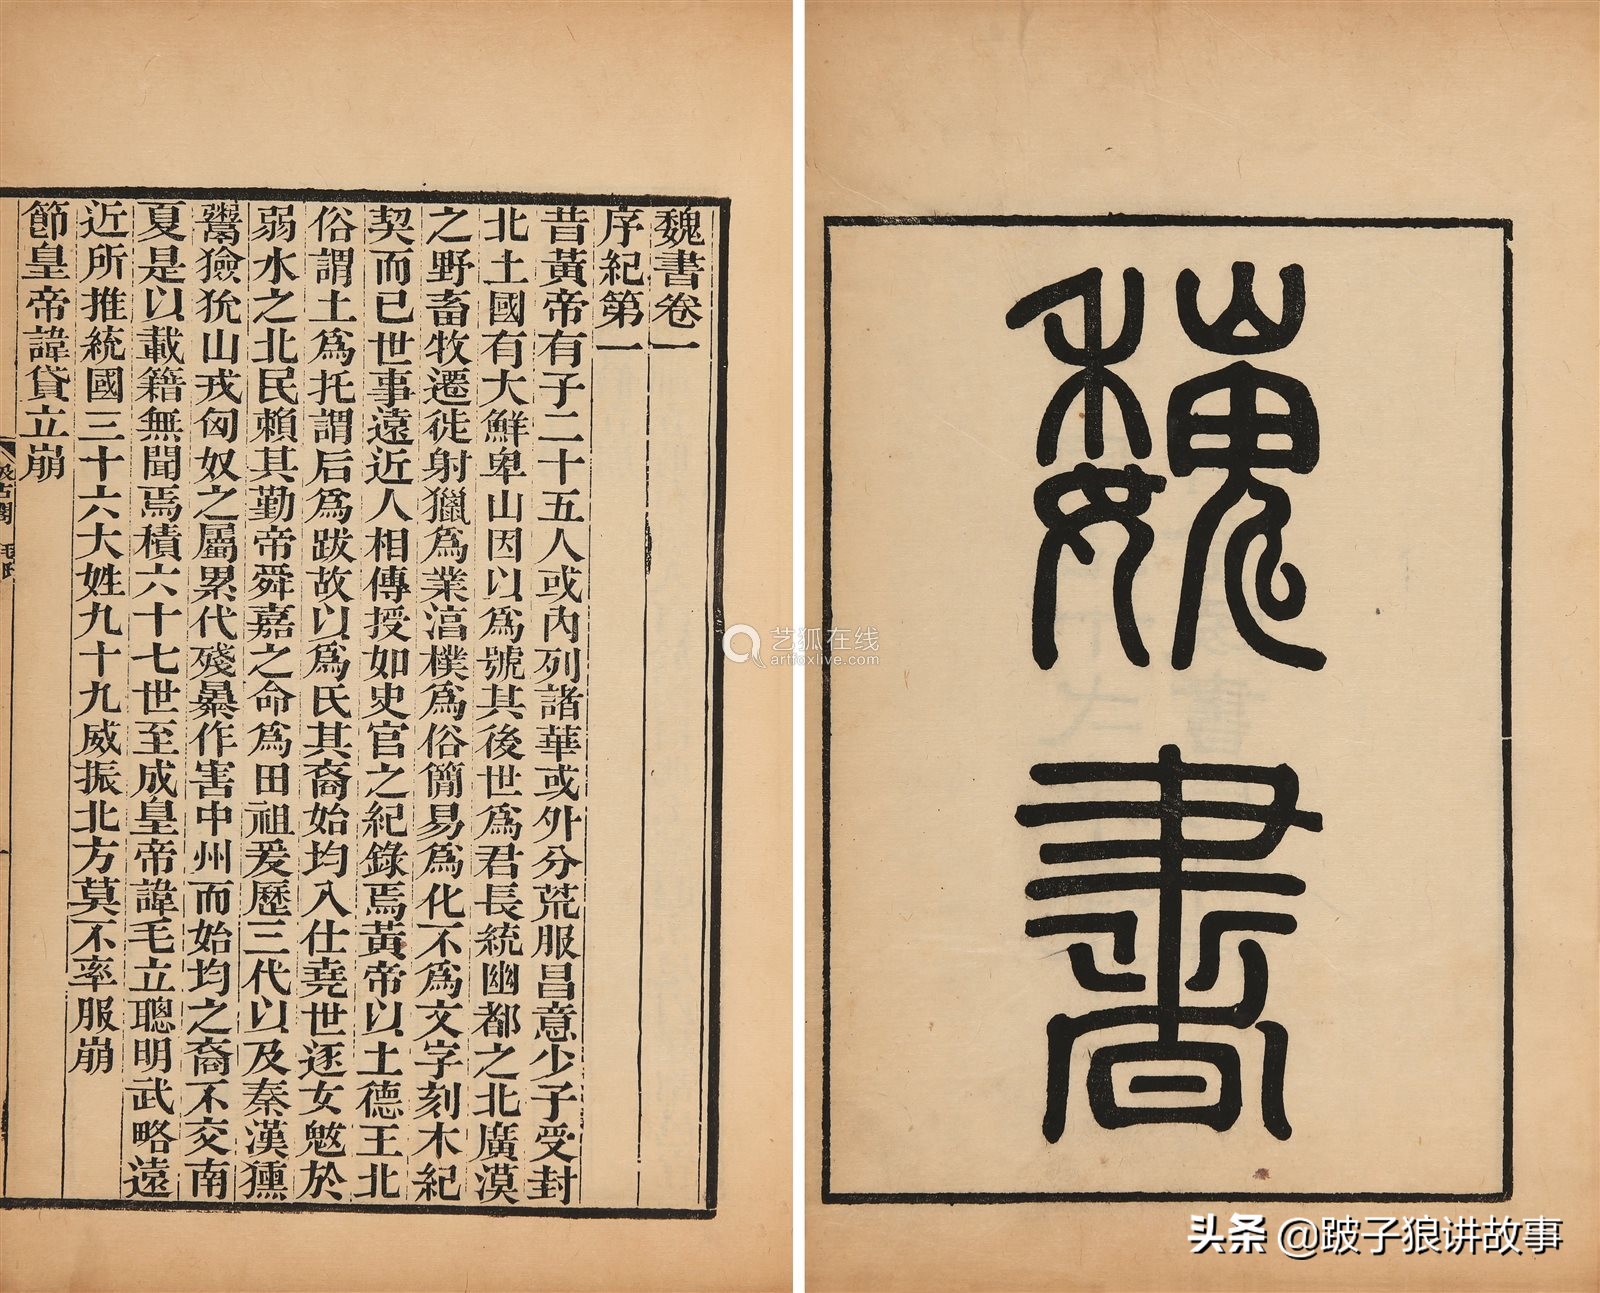 魏書
魏書卷一
序紀第一
昔黃帝有子二十五人或內列諸華或外分荒服昌意少子受封
北土國有大鮮卑山因以爲號其後世爲君長統幽都之北廣漠
之野畜牧遷徙射獵爲業淳樸爲俗簡易爲化不爲文字刻木紀
契而已世事遠近人相傳授如史官之紀錄焉黃帝以土德王北
俗謂土爲托謂后爲跋故以爲氏其裔始均入仕堯世逐女魃於
弱水之北民賴其勤帝舜嘉之命爲田祖爰歷三代以及秦漢獯
鬻獫狁山戎匈奴之屬累代殘暴作害中州而始均之裔不交南
夏是以載籍無聞焉積六十七世至成皇帝諱毛立聰明武略遠
近所推統國三十六大姓九十九威振北方莫不率服崩
節皇帝諱貸立崩
汲古閣
毛氏
艺狐在线
artfoxlive.com
头条 @跛子狼讲故事